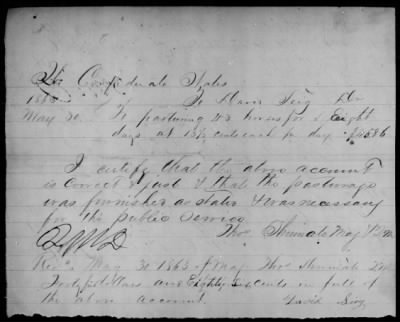 The Confederate States
1863 To David Seig Dr
May 30 To pasturing 43 horses for Eight
days at 13½ cents each pr day. $
I certify that the above account
is correct & just & that the pasturage
was furnished as stated & was necessary
for the public service
Thos. Maj
Recd. May 30 1863 of Maj Thos
dollars and Eighty cents in full of
the above account. David Seig